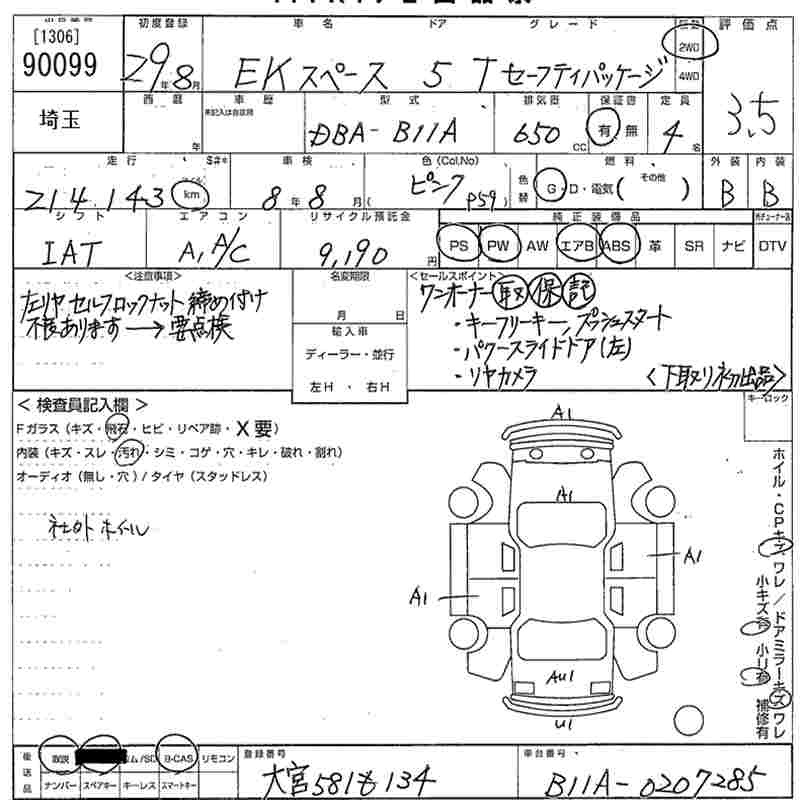 [1306]
90099
初度登録 車名 ドア グレード 評価点
29年8月 EKスペース 5 Tセーフティパッケージ 2WD 4WD 3.5
埼玉
西暦 車歴 型式 排気量 保証書 定員
年 未記入は自家用 DBA-B11A 650CC 有・無 4名
走行 S#* 車検 色(Col,No) 燃料 外装 内装
214,143 km 8年8月( ピンク P59) 色替 G・D・電気(その他 ) B B
シフト エアコン リサイクル預託金 純正装備品
IAT A,A/C 9,190円 PS PW AW エアB ABS 革 SR ナビ DTV
<注意事項> 名変期限 <セールスポイント>
左リヤ セルフロックナット 締め付け
不良あります→要点検
月 日
輸入車
ディーラー・並行
左H ・ 右H
ワンオーナー 取 保 記
・キーフリーキー,プッシュスタート
・パワースライドドア(左)
・リヤカメラ <下取り初出品>
<検査員記入欄> キーロック
Fガラス (キズ・飛石・ヒビ・リペア跡・X要)
内装 (キズ・スレ・汚れ・シミ・コゲ・穴・キレ・破れ・割れ)
オーディオ (無し・穴) / タイヤ (スタッドレス)
社外ホイール
A1
A1
A1
A1
AU1
U1
ホイル・CPキズ ワレ/ドアミラーキズ ワレ
小キズ有 小リ有 補修有
後送品 取説 ム/SD B-CAS リモコン
ナンバー スペアキー キーレス スマートキー
登録番号
大宮581も134
車台番号
B11A-0207285